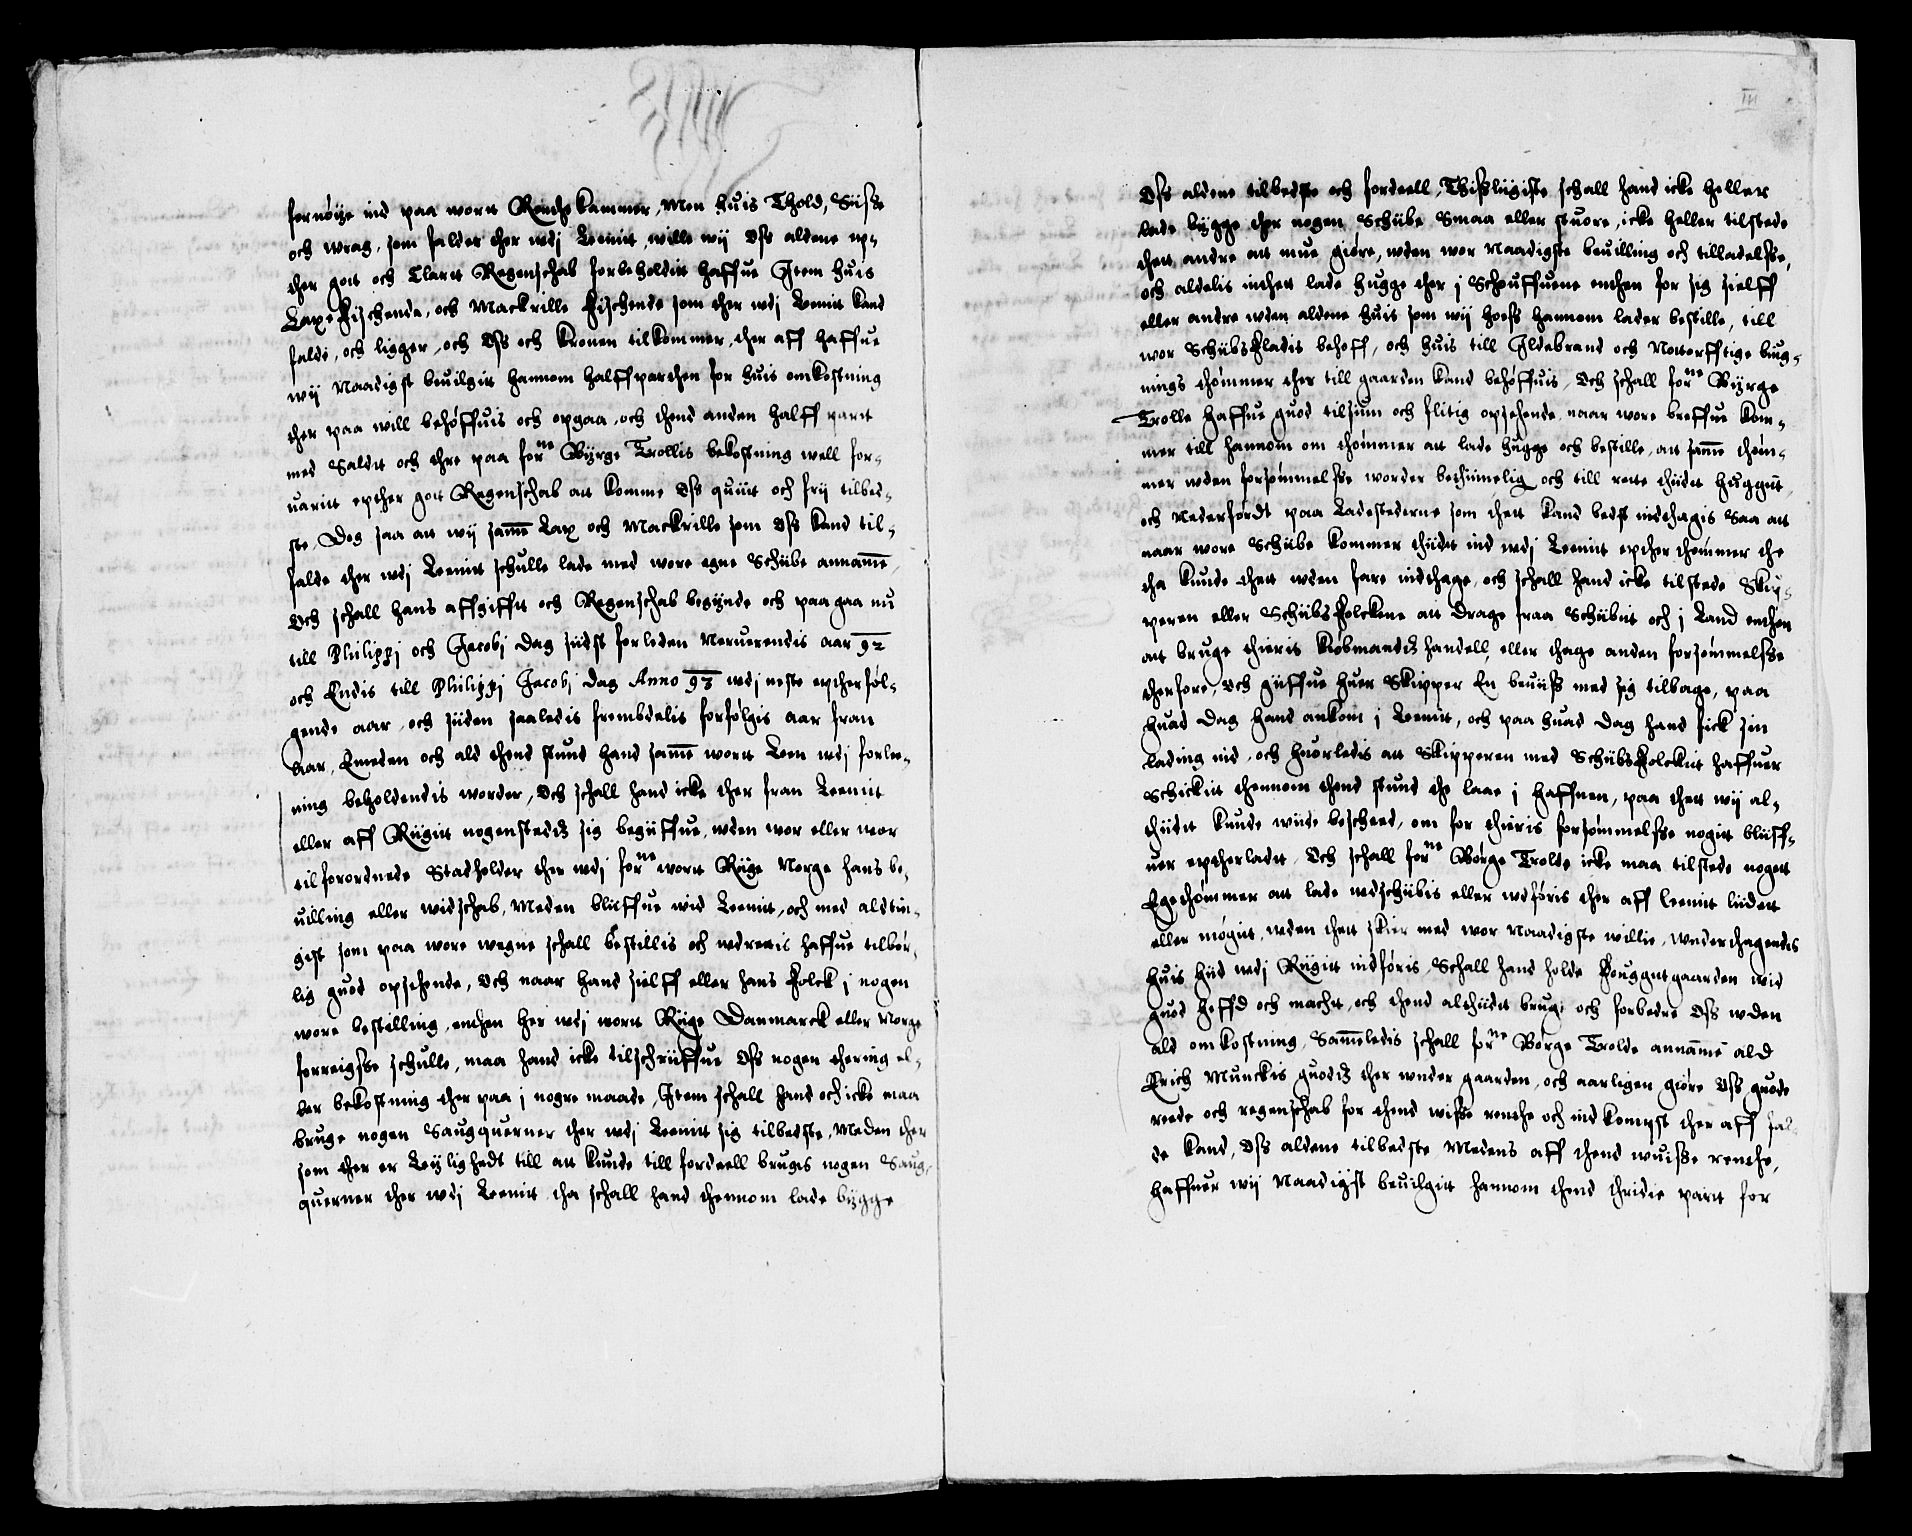 fornøije ind paa wort Renthe kammer, Men huis Thold, Siisse
och wrag, som falder ther wdj Leenit wille wij Oss aldene ep-
ther gott och Clart Regenschab forbeholdit haffue Item huis
Laxe Fischende, och Mackrille Fischende som ther wdj Leenit kand
falde, och ligger, och Oss och Kronen tilkommer, ther aff haffue
wij Naadigst beuilgit hannom halffparthen for huis omkostning
ther paa will behøffuis och opgaa, och thend anden halff part
med Saldt och thre paa forne Byrge Trollis bekostning well for-
uarit epther gott Regenschab att komme Oss quiit och frij tilbed-
ste, Dog saa att wij same Lax och Mackrille som Oss kand til-
falde ther wdj Leenit schulle lade med wore egne Schiibe annamme,
Och schall hans affgifft och Regenschab begynde och paagaa nu
till Philippj och Jacobj dag siidst forleden Neruerendis aar 92
och Endis till Philippj Jacobj dag Anno 93 wdj neste eptherføl-
gende aar, och siiden saaledis frembdelis forfølgis aar fran
Aar, Emeden och ald thend stund hand same wort Leen wdj forlee-
ning beholdendis worder, Och schall hand icke ther fran Leenit
eller aff Riigit nogenstedz sig begiiffue, wden wor eller wor
tilforordnede Stadholder ther wdj forne wort Riige Norge hans be-
uilling eller widschab, Meden bliiffue wid Leenit, och med aldtin-
gist som paa wore wegne schall bestillis och wdrettis haffue tilbør-
lig guod opsehende, Och naar hand sielff eller hans Folck j nogen
wore bestilling, enthen her wdj wort Riige Danmarck eller Norge
forreigsse schulle, maa hand icke tilschriiffue Oss nogen thering el-
ler bekostning ther paa j nogre maade, Item schall hand och icke maa
bruge nogen Saugquerner ther wdj Leenit sig tilbedste, Meden ther
som ther er Leyligheedt till att kunde till fordeell brugis nogen Saug-
querner ther wdj Leenit, tha schall hand thennom lade bygge
III
Oss aldene tilbedste och fordeell, Thisligiste schall hand icke heller
lade bygge ther nogen Schiibe Smaa eller stuore, icke heller tilstede
thett andre att mue giøre, wden wor Naadigste beuilling och tilladelsse,
och aldelis inthet lade hugge ther j Schouffuene enthen for sig sielff
eller andre wden aldene huis som wij hoess hannom lader bestille, till
wor Schiibs Fladis behoff, och huis till Ildebrand och Nøttorfftige byg-
nings thømmer ther till gaarden kand behøffuis, Och schall forne Byrge
Trolle haffue guod tilsiun och flitig opsehende naar wore breffue kom-
mer till hannom om thømmer att lade hugge och bestille, att same thøm-
mer wden forsømmelsse worder bethimelig och till rette thiidt huggit,
och Nederførdt paa Ladestederne som thett kand best indthagis Saa att
naar wore Schiibe kommer thiidt ind wdj Leenit epther thømmer the
tha kunde thett wden fare indthage, och schall hand icke tilstede Skip-
peren eller Schiibs Folckene att drage fraa Schiibit och j Land enthen
att bruge thieris Kiøbmandz handell, eller thage anden forsømmelsse
therfore, Och giiffue huer Skipper En beuiiss med sig tilbage, paa
huad dag hand ankom j Leenit, och paa huad dag hand fick sin
lading ind, och huorledis att Skipperen med Schiibs Folckit haffuer
schickit thennom thend stund the laae j haffnen, paa thett wij al-
thiidt kunde wiide bescheed, om for thieris forsømmelsse nogit bliiff-
uer eptherladt, Och schall forne Børge Trolde icke maa tilstede nogen
Egethømmer att lade wdschiibis eller wdføris ther aff Leenit liidett
eller møgit, wden thett skier med wor Naadigste willie, wnderthagendis
huis hiid wdj Riigit indføris, Schall hand holde Fouggitgaarden wid
guod heffd och macht, och thend althiidt bruge och forbedre Oss wden
ald omkostning, Sameledis schall forne Børge Trolde annamme ald
Erich Munckis guodz ther wnder gaarden, och aarligen giøre Oss guode
rede och regenschab for thend wisse renthe och indkompst ther aff fal-
de kand, Oss aldene tilbedste Medens aff thend wuisse renthe,
haffuer wij Naadigst beuilgit hannom thend thridie part for